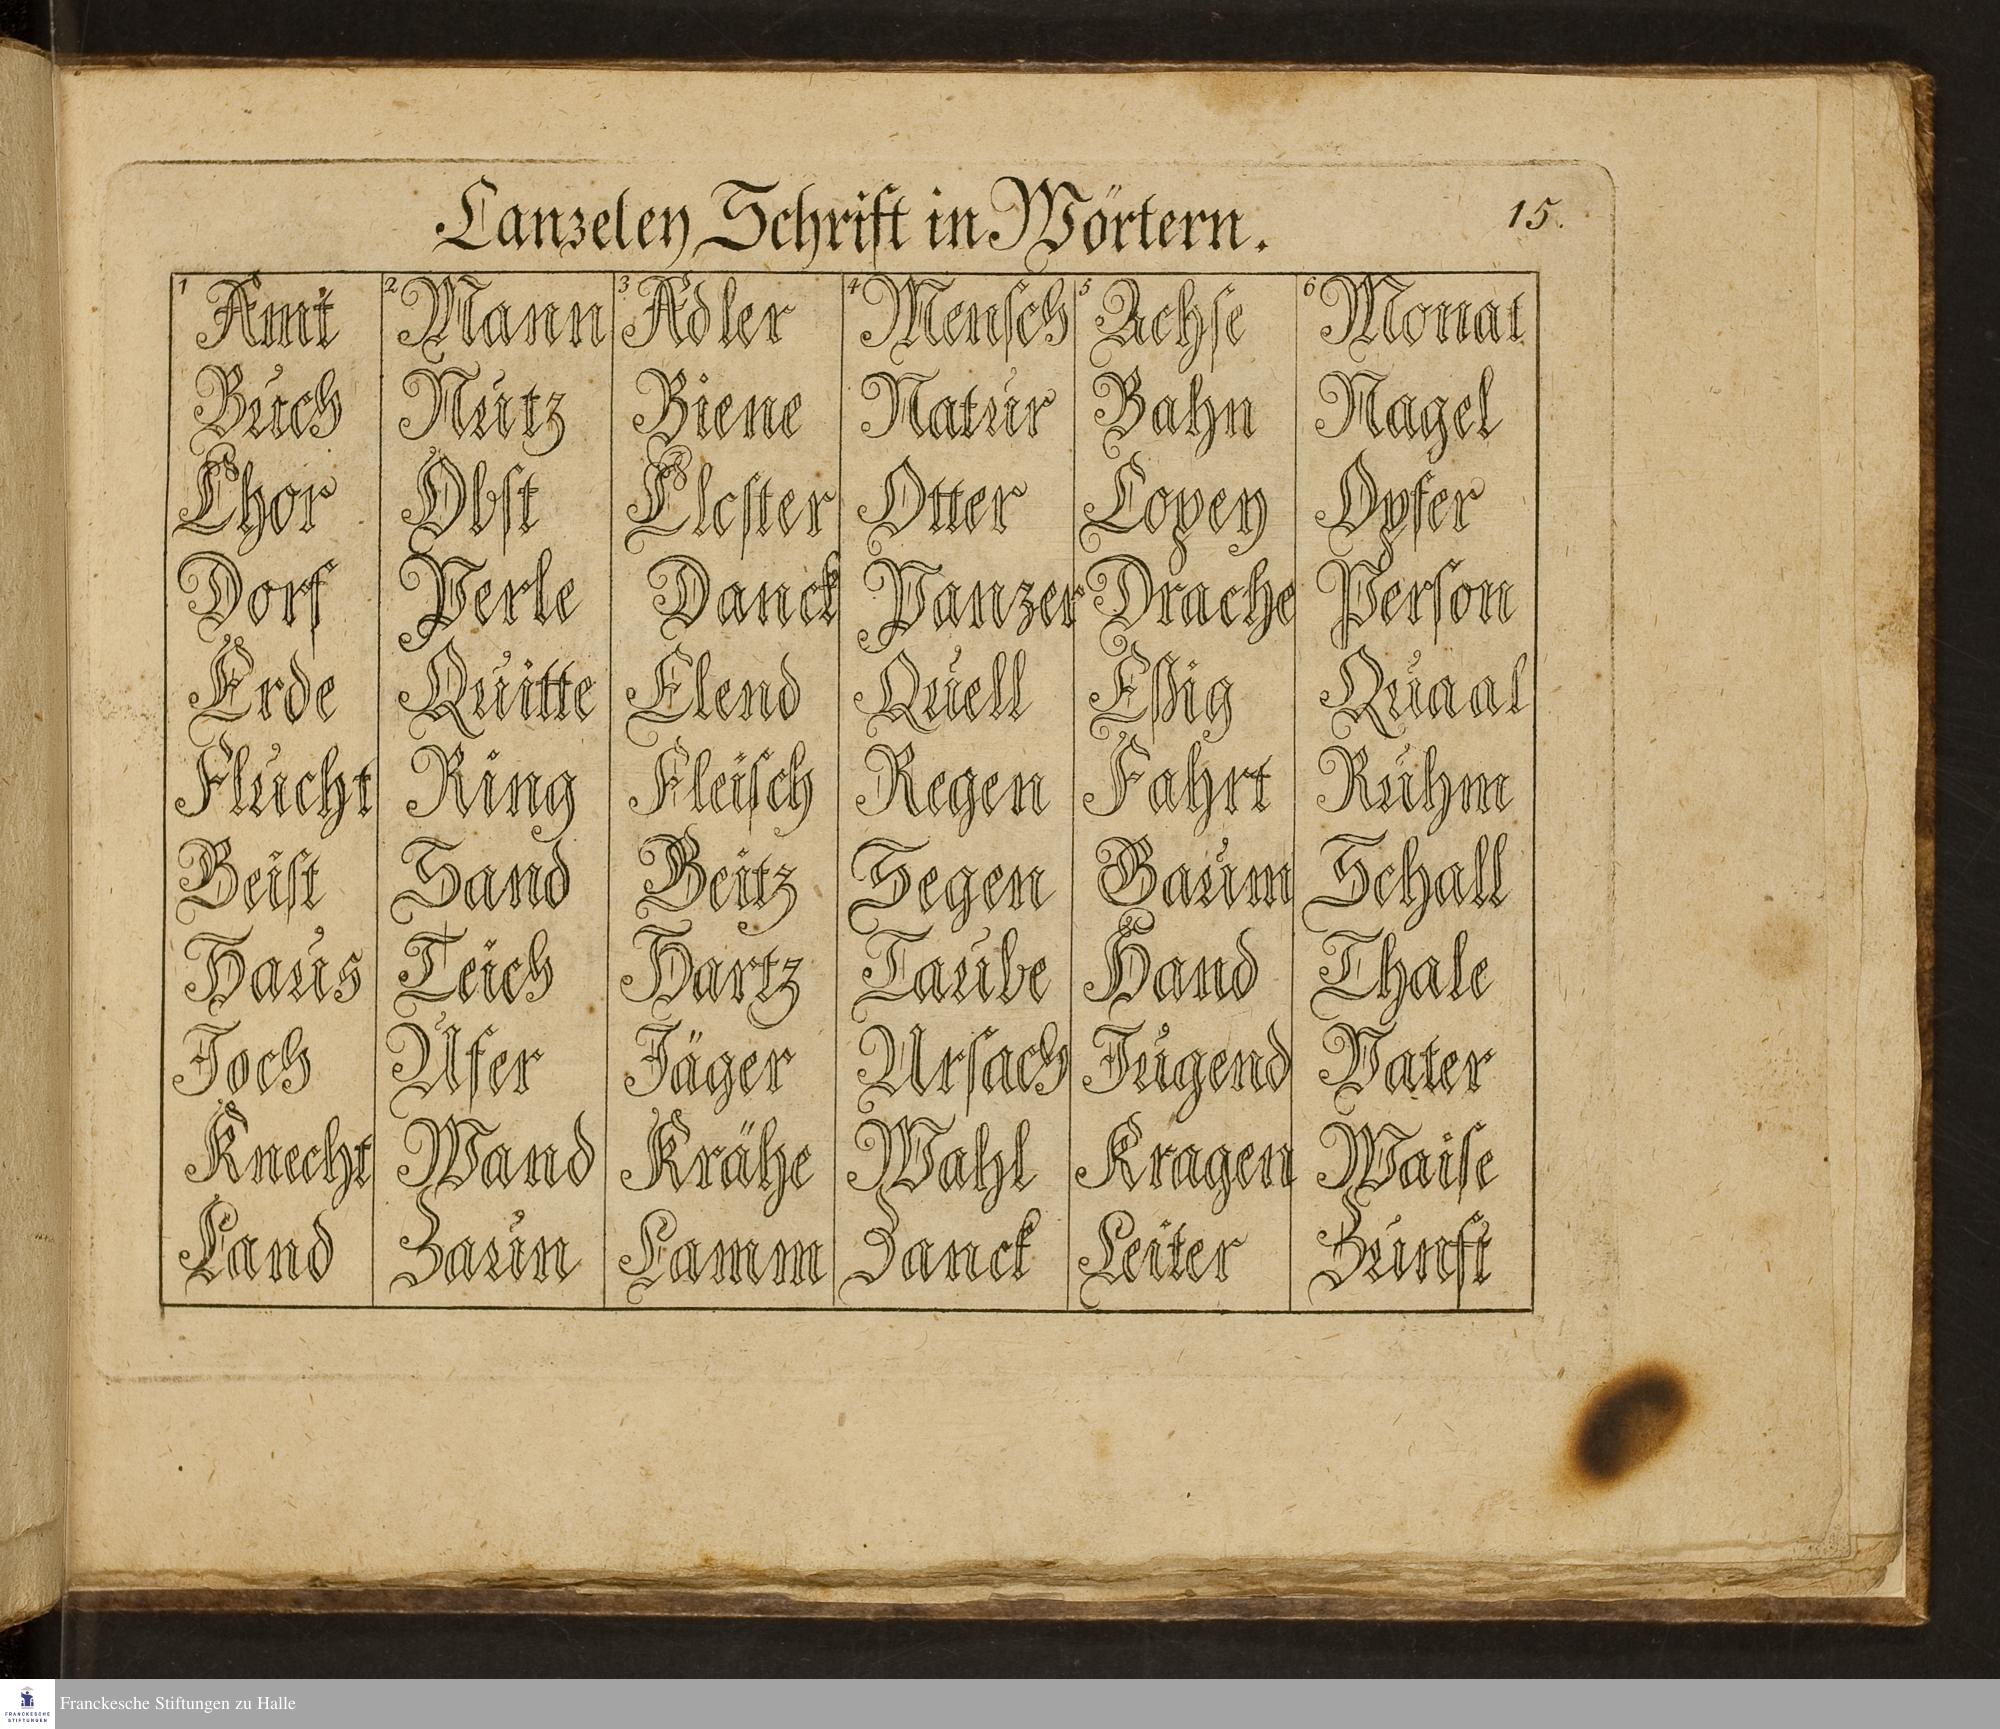 Canzeley Schrift in Wörtern. 15.
1 Amt 2 Mann 3 Adler 4 Mensch 5 Achse 6 Monat
Buch Nutz Biene Natur Bahn Nagel
Chor Obst Closter Otter Copey Opfer
Dorf Perle Danck Panzer Drache Person
Erde Quitte Elend Quell Eßig Quaal
Flucht Ring Fleisch Regen Fahrt Ruhm
Geist Sand Geitz Segen Gaum Schall
Haus Teich Hartz Taube Hand Thale
Joch Ufer Jäger Ursach Jugend Vater
Knecht Wand Krähe Wahl Kragen Waise
Land Zaun Lamm Zanck Leiter Zunft
FRANCKESCHE
STIFTUNGEN
Franckesche Stiftungen zu Halle